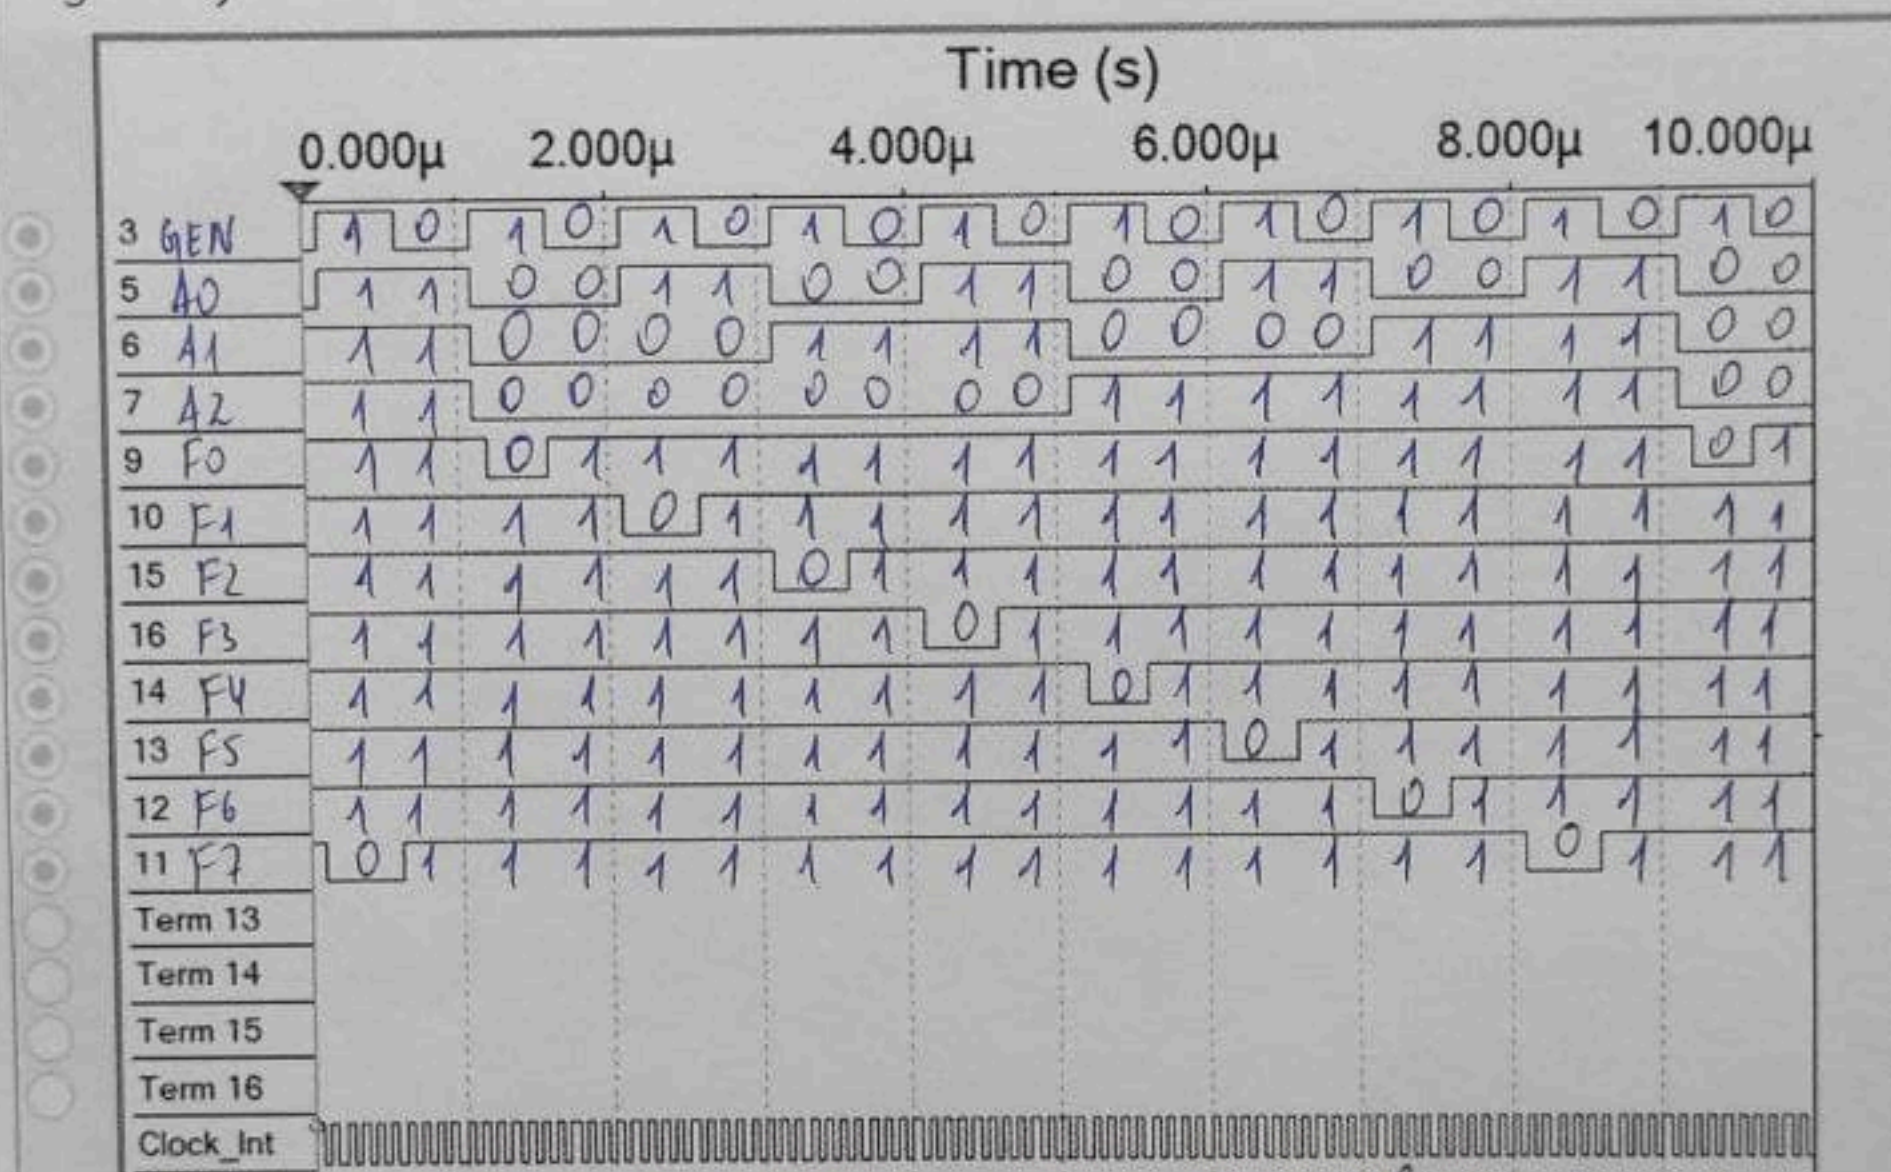 Time (s)
0.000µ 2.000µ 4.000µ 6.000µ 8.000µ 10.000µ
3 GEN 1 0 1 0 1 0 1 0 1 0 1 0 1 0 1 0 1 0 1 0
5 A0 1 1 0 0 1 1 0 0 1 1 0 0 1 1 0 0 1 1 0 0
6 A1 1 1 0 0 0 0 1 1 1 1 0 0 0 0 1 1 1 1 0 0
7 A2 1 1 0 0 0 0 0 0 0 0 1 1 1 1 1 1 1 1 0 0
9 F0 1 1 0 1 1 1 1 1 1 1 1 1 1 1 1 1 1 1 0 1
10 F1 1 1 1 1 0 1 1 1 1 1 1 1 1 1 1 1 1 1 1 1
15 F2 1 1 1 1 1 1 0 1 1 1 1 1 1 1 1 1 1 1 1 1
16 F3 1 1 1 1 1 1 1 1 0 1 1 1 1 1 1 1 1 1 1 1
14 F4 1 1 1 1 1 1 1 1 1 1 0 1 1 1 1 1 1 1 1 1
13 F5 1 1 1 1 1 1 1 1 1 1 1 1 0 1 1 1 1 1 1 1
12 F6 1 1 1 1 1 1 1 1 1 1 1 1 1 1 0 1 1 1 1 1
11 F7 0 1 1 1 1 1 1 1 1 1 1 1 1 1 1 1 0 1 1 1
Term 13
Term 14
Term 15
Term 16
Clock_Int